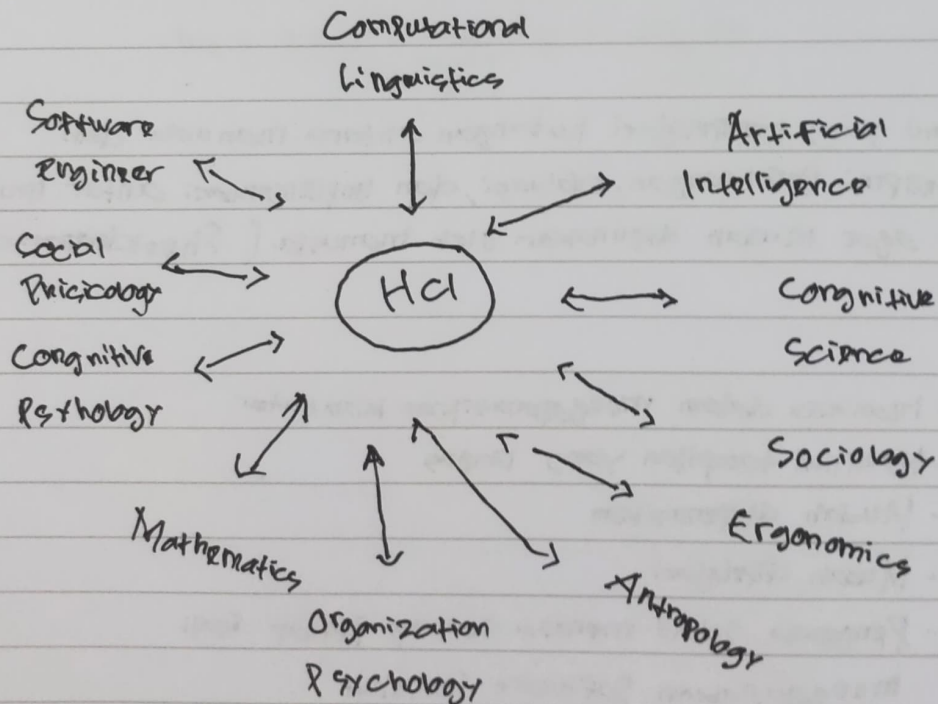 Computational
Linguistics
Software
Engineer
Artificial
Intelligence
Social
Phicicology
HCI
Congnitive
Science
Congnitive
Psrhology
Sociology
Mathematics
Ergonomics
Antropology
Organization
Psychology